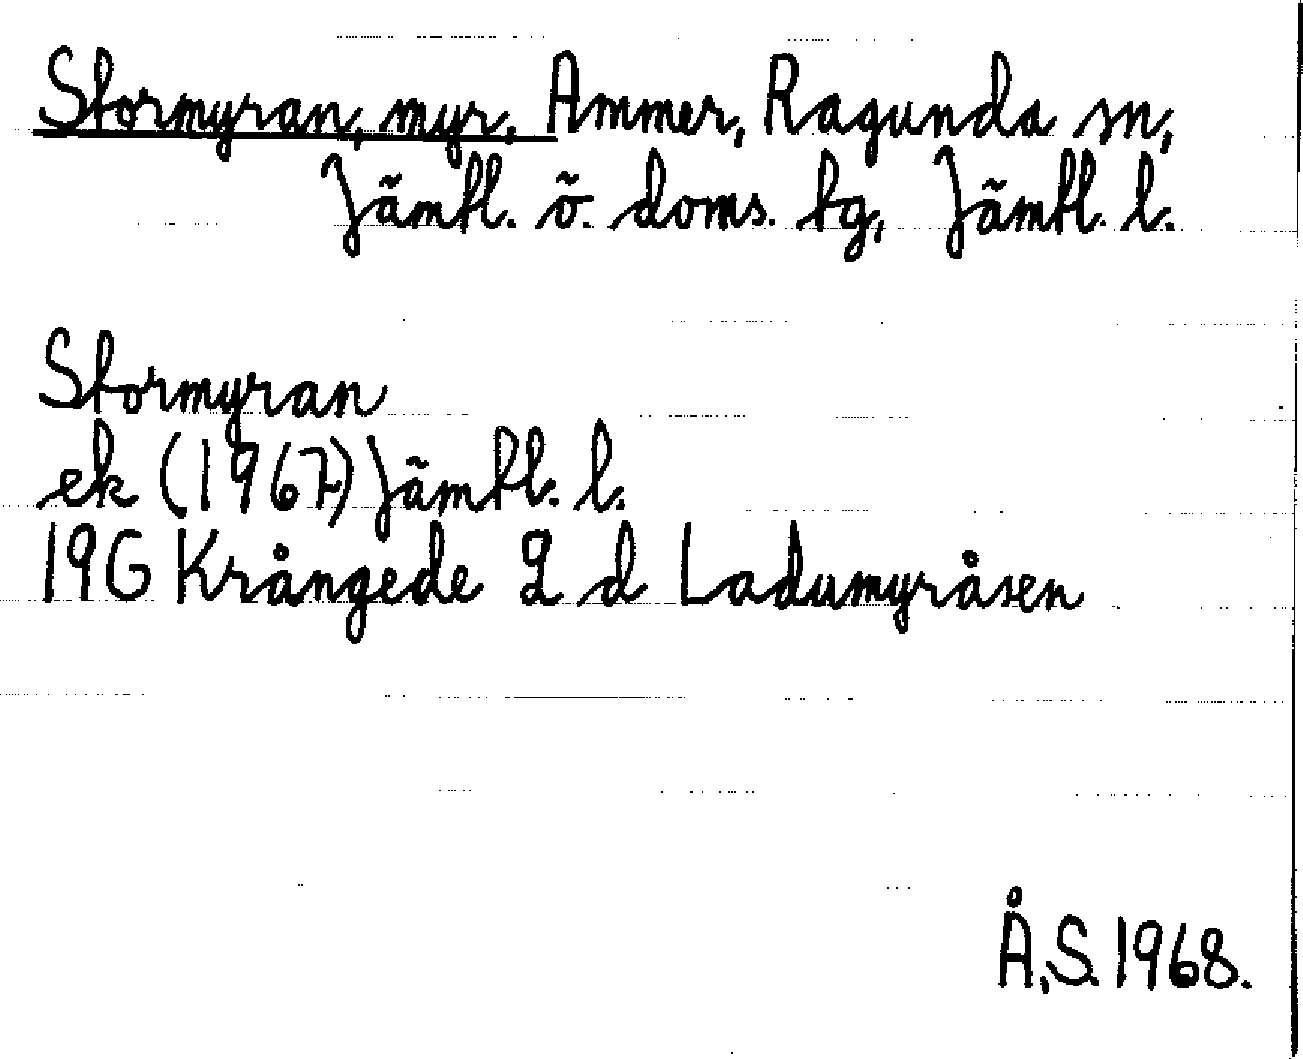 Stormyran, myr, Ammer, Ragunda sn,
Jämtl. ö. doms. tg, Jämtl. l.
Stormyran
ek (1967) Jämtl. l.
19G Krångede 2 d Ladumyråsen
Å.S. 1968.